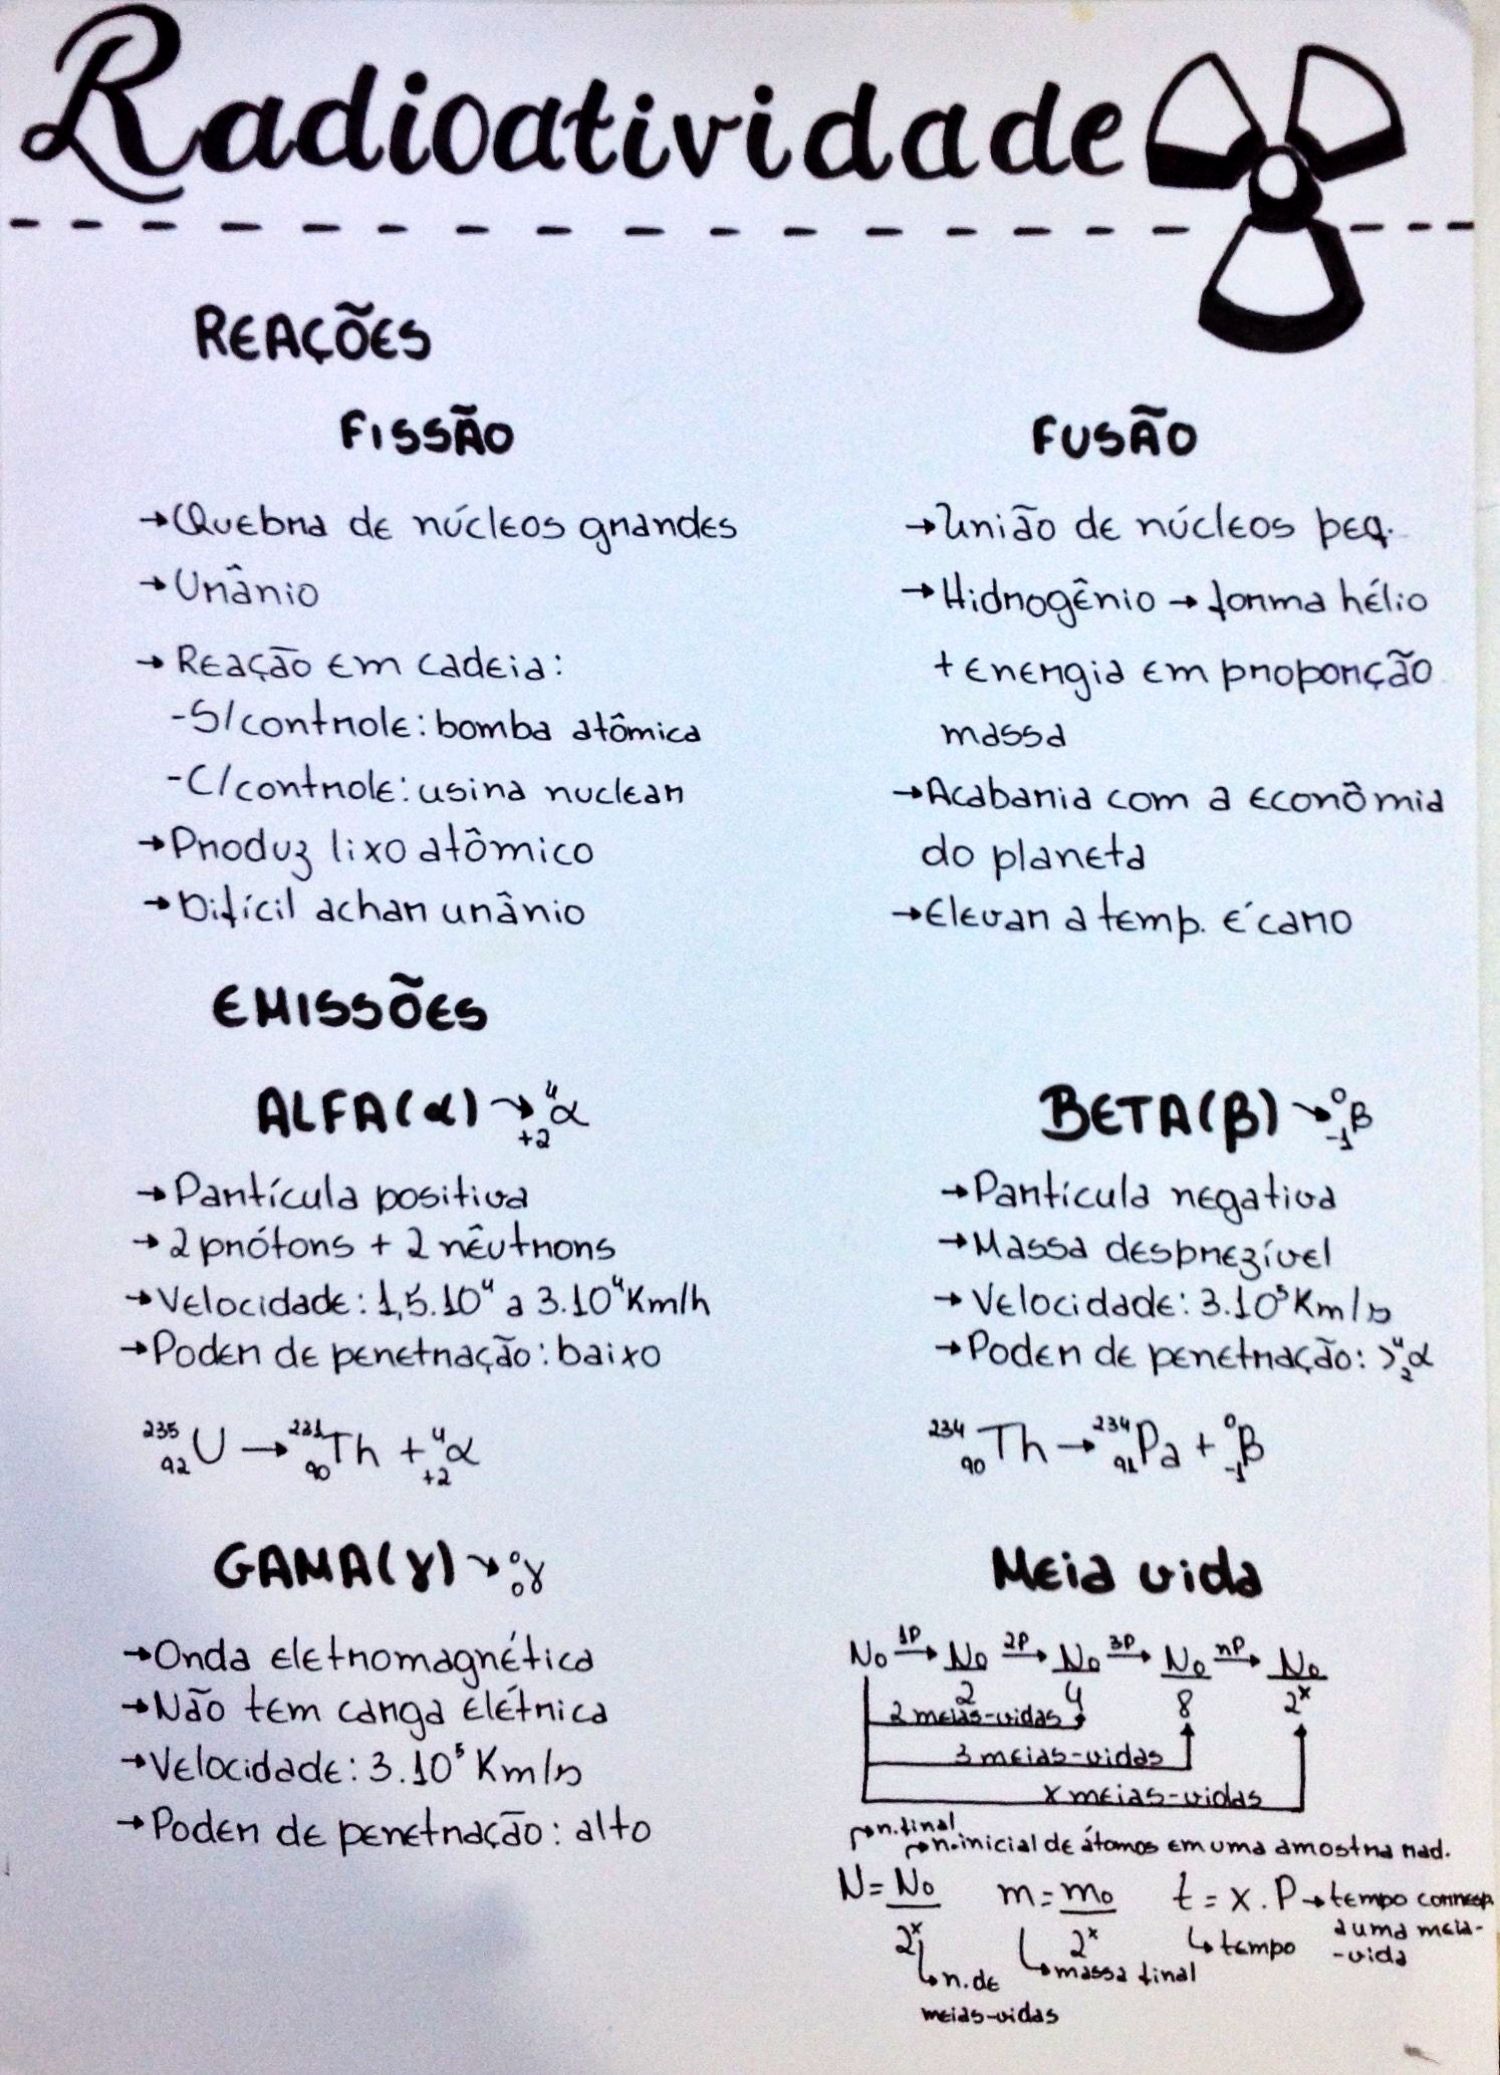 Radioatividade
REAÇÕES
FISSÃO
→ Quebra de núcleos grandes
→ Urânio
→ Reação em cadeia:
- S/ controle: bomba atômica
- C/ controle: usina nuclear
→ Produz lixo atômico
→ Difícil achar urânio
FUSÃO
→ União de núcleos peq.
→ Hidrogênio → forma hélio
+ energia em proporção
massa
→ Acabaria com a econômia
do planeta
→ Elevar a temp. é caro
EMISSÕES
ALFA (α) → ⁴₊₂α
→ Partícula positiva
→ 2 prótons + 2 nêutrons
→ Velocidade: 1,5.10⁴ a 3.10⁴ Km/h
→ Poder de penetração: baixo
²³⁵₉₂U → ²³¹₉₀Th + ⁴₊₂α
BETA (β) → ⁰₋₁β
→ Partícula negativa
→ Massa desprezível
→ Velocidade: 3.10⁵ Km/s
→ Poder de penetração: > ⁴₂α
²³⁴₉₀Th → ²³⁴₉₁Pa + ⁰₋₁β
GAMA (γ) → ⁰₀γ
→ Onda eletromagnética
→ Não tem carga elétrica
→ Velocidade: 3.10⁵ Km/s
→ Poder de penetração: alto
Meia vida
N₀ 1P→ N₀/2 2P→ N₀/4 3P→ N₀/8 nP→ N₀/2ˣ
2 meias-vidas
3 meias-vidas
x meias-vidas
n. final
n. inicial de átomos em uma amostra rad.
N = N₀/2ˣ m = m₀/2ˣ t = x . P → tempo corresp.
a uma meia-
-vida
tempo
massa final
n. de
meias-vidas